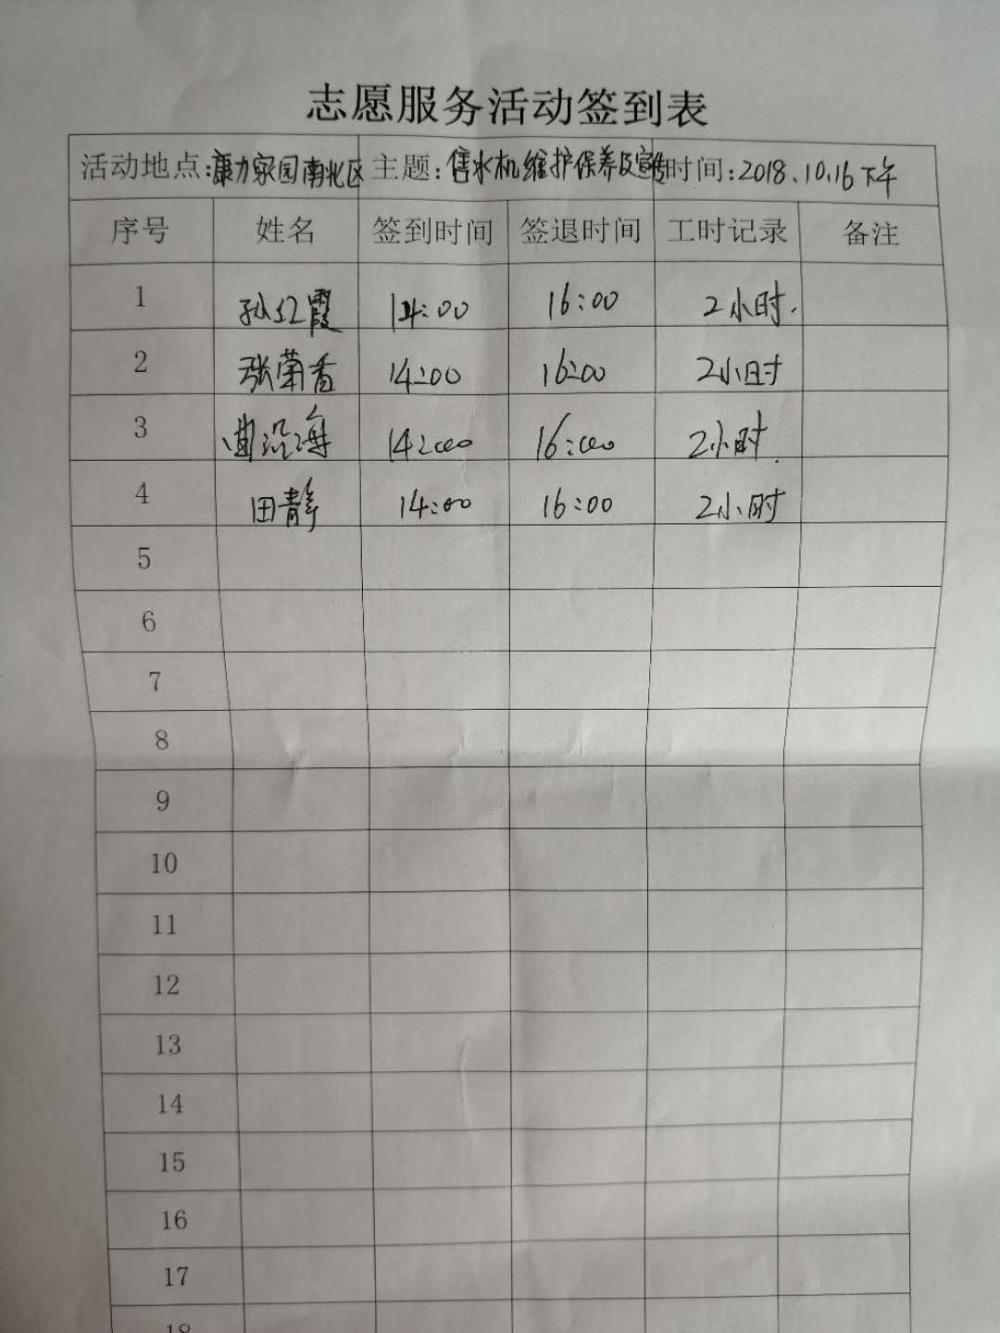 志愿服务活动签到表
活动地点:康力家园南北区 主题:售水机维护保养及宣传 时间:2018.10.16下午
序号 姓名 签到时间 签退时间 工时记录 备注
1 孙红霞 14:00 16:00 2小时.
2 张菊香 14:00 16:00 2小时
3 曲沿海 14:00 16:00 2小时.
4 田静 14:00 16:00 2小时
5
6
7
8
9
10
11
12
13
14
15
16
17
18